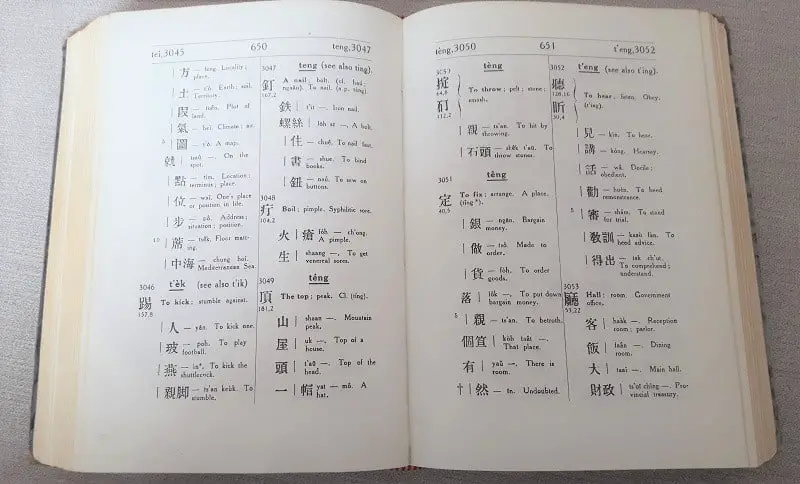 tei,3045 650 teng,3047
｜方 — fong. Locality;
place.
｜土 — t'ò. Earth; soil.
Territory.
｜段 — tuên. Plot of
land.
｜氣 — hei. Climate; air.
5 ｜圖 — t'ò. A map.
— On the
spot.
｜點 — tim. Location;
terminus; place.
｜位 — wai. One's place
or position in life.
｜步 — pô. Address;
situation; position.
10 ｜蓆 — tsêk. Floor matting.
｜中海 — chung hoi.
Mediterranean Sea.
3046 t'èk (see also t'ik)
踢 To kick; stumble against.
157,8
｜人 — yân. To kick one.
｜波 — poh. To play
football.
｜燕 — in*. To kick the
shuttlecock.
｜親脚 — ts'an keùk. To
stumble.
3047 teng (see also ting).
釘 A nail; bolt. (cl. haú,
ngān). To nail. (a.p. tíng).
167,2
鉄｜ t'ìt —. Iron nail.
螺絲｜ lōh sz —. A bolt.
｜住 — chuê. To nail fast.
｜書 — shue. To bind
books.
｜鈕 — naú. To sew on
buttons.
3048
疔 Boil; pimple. Syphilitic sore.
104,2
火｜瘡 fóh — ch'ong.
A pimple.
生｜ shaang —. To get
venereal sores.
3049 téng
頂 The top; peak. Cl. (tíng).
181,2
山｜ shaan —. Mountain
peak.
屋｜ uk —. Top of a
house.
頭｜ t'aū —. Top of the
head.
一｜帽 yat — mô. A
hat.
tèng,3050 651 t'eng,3052
tèng
To throw; pelt; stone;
64,8
112,2
｜親 — ts'an. To hit by
throwing.
｜石頭 — shêk t'aū. To
throw stones.
3051 têng
定 To fix; arrange. A place.
(tîng*).
40,5
｜銀 — ngân. Bargain
money.
｜做 — tsô. Made to
order.
｜貨 — fòh. To order
goods.
落｜ lôk —. To put down
bargain money.
5 ｜親 — ts'an. To betroth.
個笪｜ kòh taàt —.
That place.
有｜ yaŭ —. There is
room.
｜然 — in. Undoubted.
3052 t'eng (see also t'ing).
聽 To hear, listen. Obey.
(t'ing).
128,16
30,4
｜見 — kìn. To hear.
｜講 — kóng. Hearsay.
｜話 — wâ. Docile;
obedient.
｜勸 — huèn. To heed
remonstrance.
5 ｜審 — shám. To stand
for trial.
｜教訓 — kaaù fàn. To
heed advice.
｜得出 — tak ch'ut.
To comprehend;
understand.
3053
廳 Hall; room. Government
office.
53,22
客｜ haàk —. Reception
room; parlor.
飯｜ faân —. Dining
room.
大｜ taaî —. Main ball.
財政｜ ts'oī chìng —. Provincial
treasury.